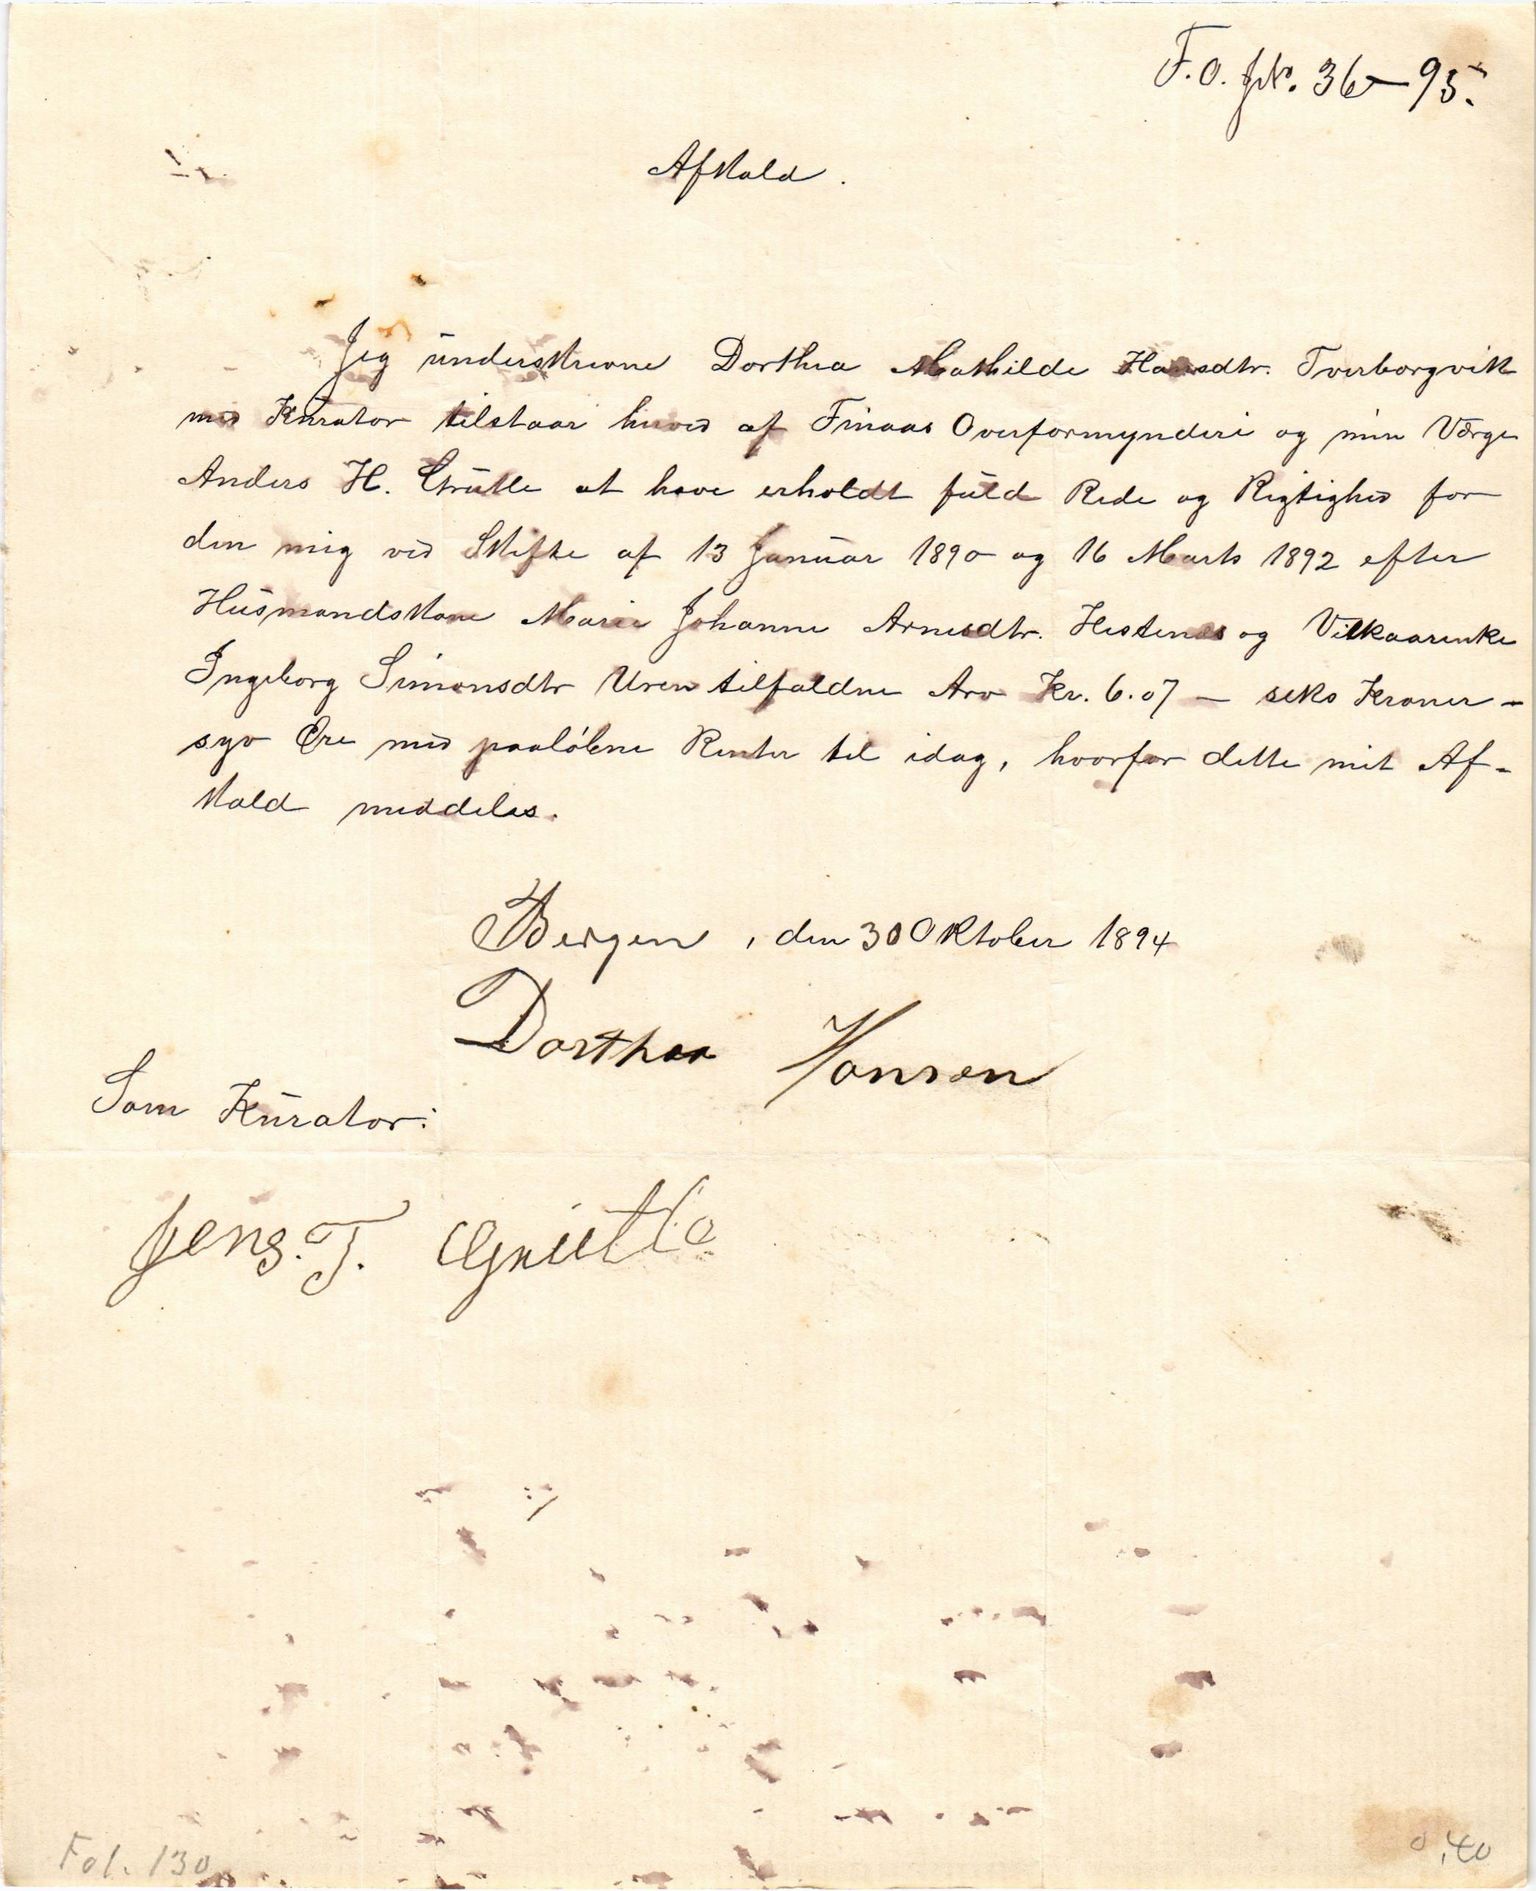 F.O. J.N. 36-95.
Afkald.
Jeg underskrevne Dorthea Mathilde Hansdtr. Tverborgvik
med Kurator tilstaar herved af Finaas Overformynderi og min Værge
Anders H. Grutle at have erholdt fuld Rede og Rigtighed for
den mig ved Skifte af 13 Januar 1890 og 16 Marts 1892 efter
Husmandskone Marie Johanne Arnesdtr. Hestenes og Vilkaarenke
Ingeborg Simonsdtr Uren tilfaldne Arv Kr. 6.07 — seks Kroner -
syv Øre med paaløbne Renter til idag, hvorfor dette mit Af-
kald meddeles.
Bergen, den 30 Oktober 1894
Dorthea Hansen
Som Kurator:
Jens. T. Grutle
Fol. 130
0,40